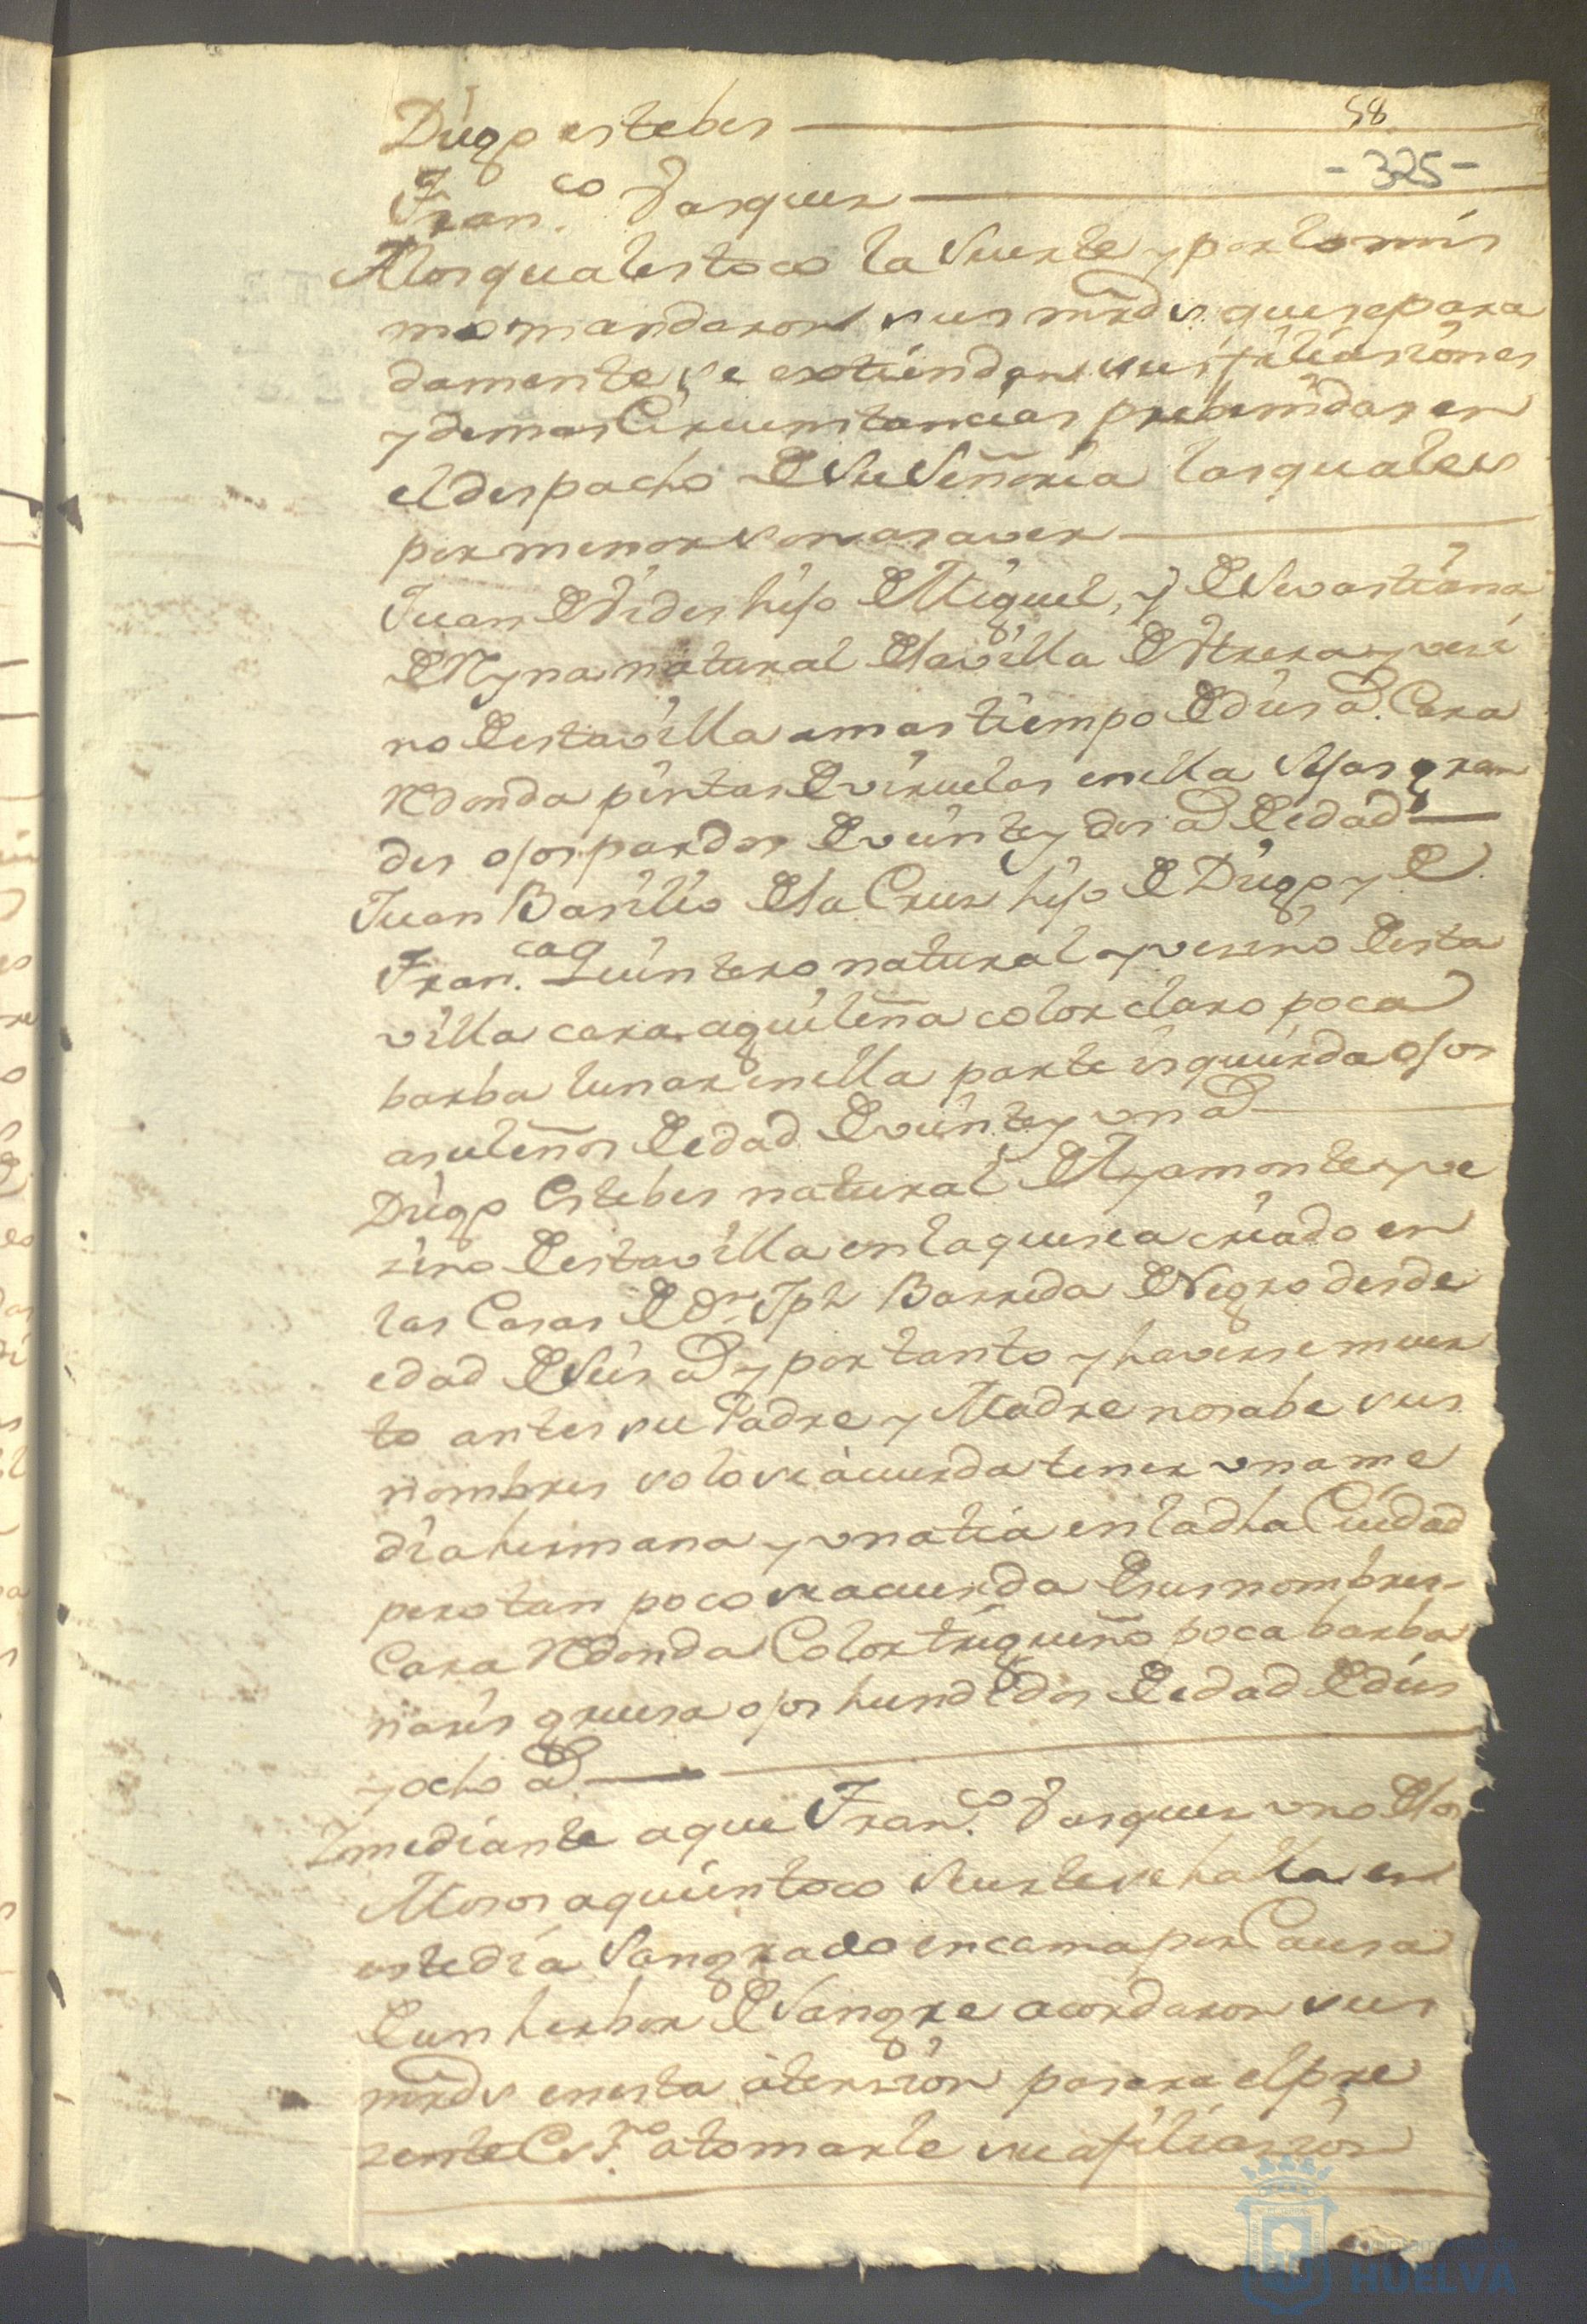 58
- 325 -
Diego estebes
Fran.co Vasques
A los quales toco la Suerte y por lo mis
mo mandaron sus mrds. que separa
damente se extiendan sus filiasiones
y demas Circunstancias prebenidas en
el despacho de Su Señoria las quales
por menor son asaver
Juan de Vides hijo de Miguel, y de Sevastiana
de Reyna natural de la villa de Utrera y vesi
no de esta villa a mas tiempo de dies as. Cara
Redonda pintas de viruelas en ella Sejas gran
des ojos pardos de veinte y dos as de edad
Juan Basilio de la Crus hijo de Diego y de
Fran.ca Quintero natural y vesino de esta
villa cara aguileña color claro poca
barba lunar en ella parte isquierda ojos
asuleños de edad de veinte y un as
Diego Estebes natural de Ayamonte y ve
zino de esta villa en la que se a criado en
las Casas de Dn. Jph Barreda de Negro desde
edad de Seis as y por tanto y haverse muer
to antes su Padre y Madre no sabe sus
nombres solo se acuerda tener una me
dia hermana y una tia en la dha Ciudad
pero tan poco se acuerda de sus nombres-
Cara Redonda Color trigueño poca barba
naris gruesa ojos hundidos de edad de dies
y ocho as.
Y mediante a que Fran.co Vasques uno de los
Mosos a quien toco Suerte se halla en
este dia Sangrado en cama por Causa
de un herbor de Sangre acordaron sus
mrds en esta atension pasara el pre
zente Es.no a tomarle su afiliasion
HUELVA